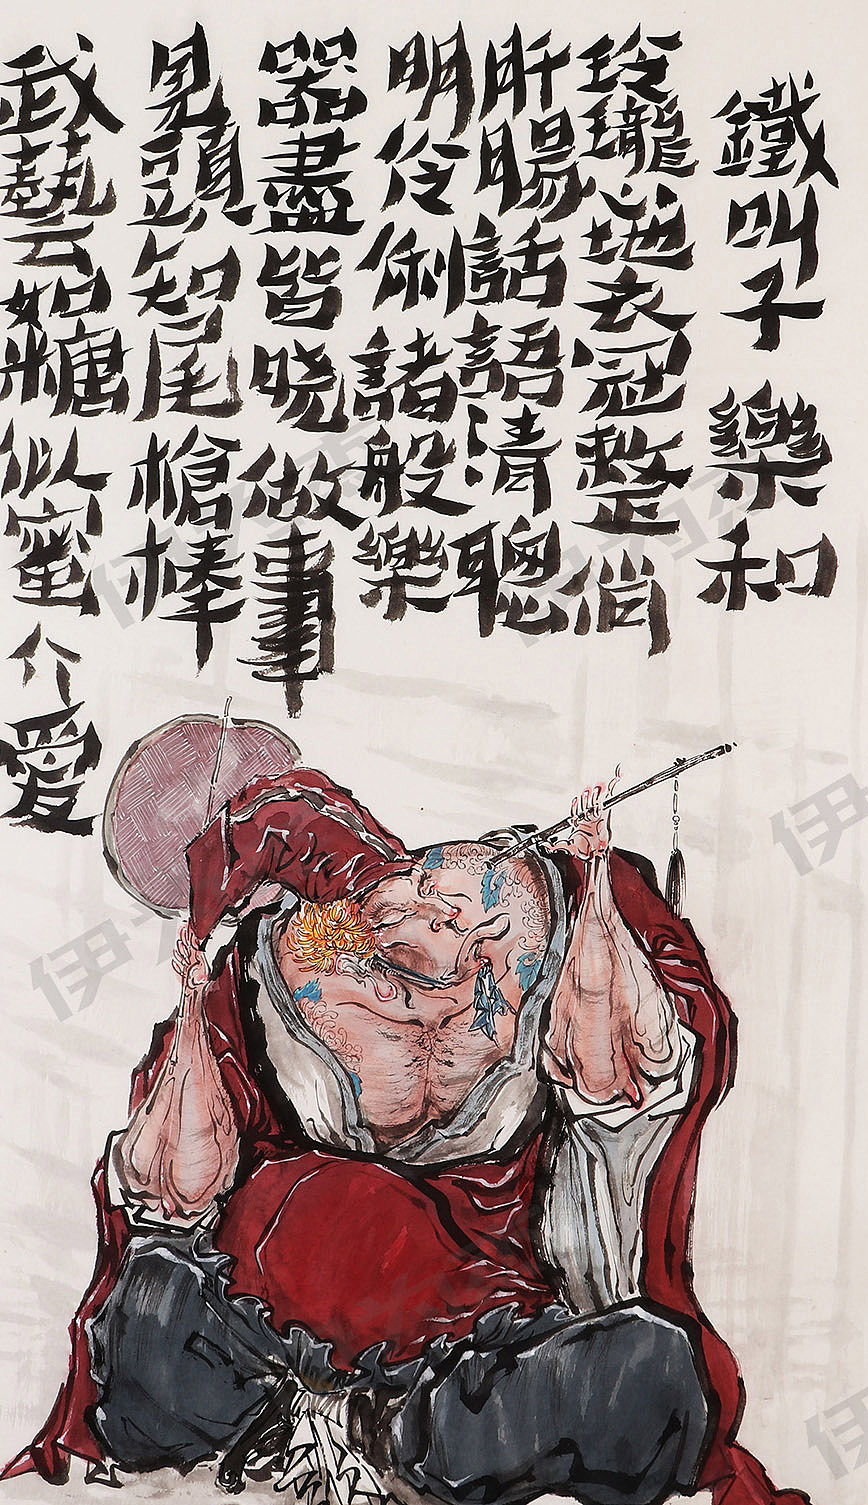 鐵叫子 樂和
玲瓏心地衣冠整俏
肝腸話語清聰
明伶俐諸般樂
器盡皆晓做事
見頭知尾槍棒
武藝如糖似蜜愛